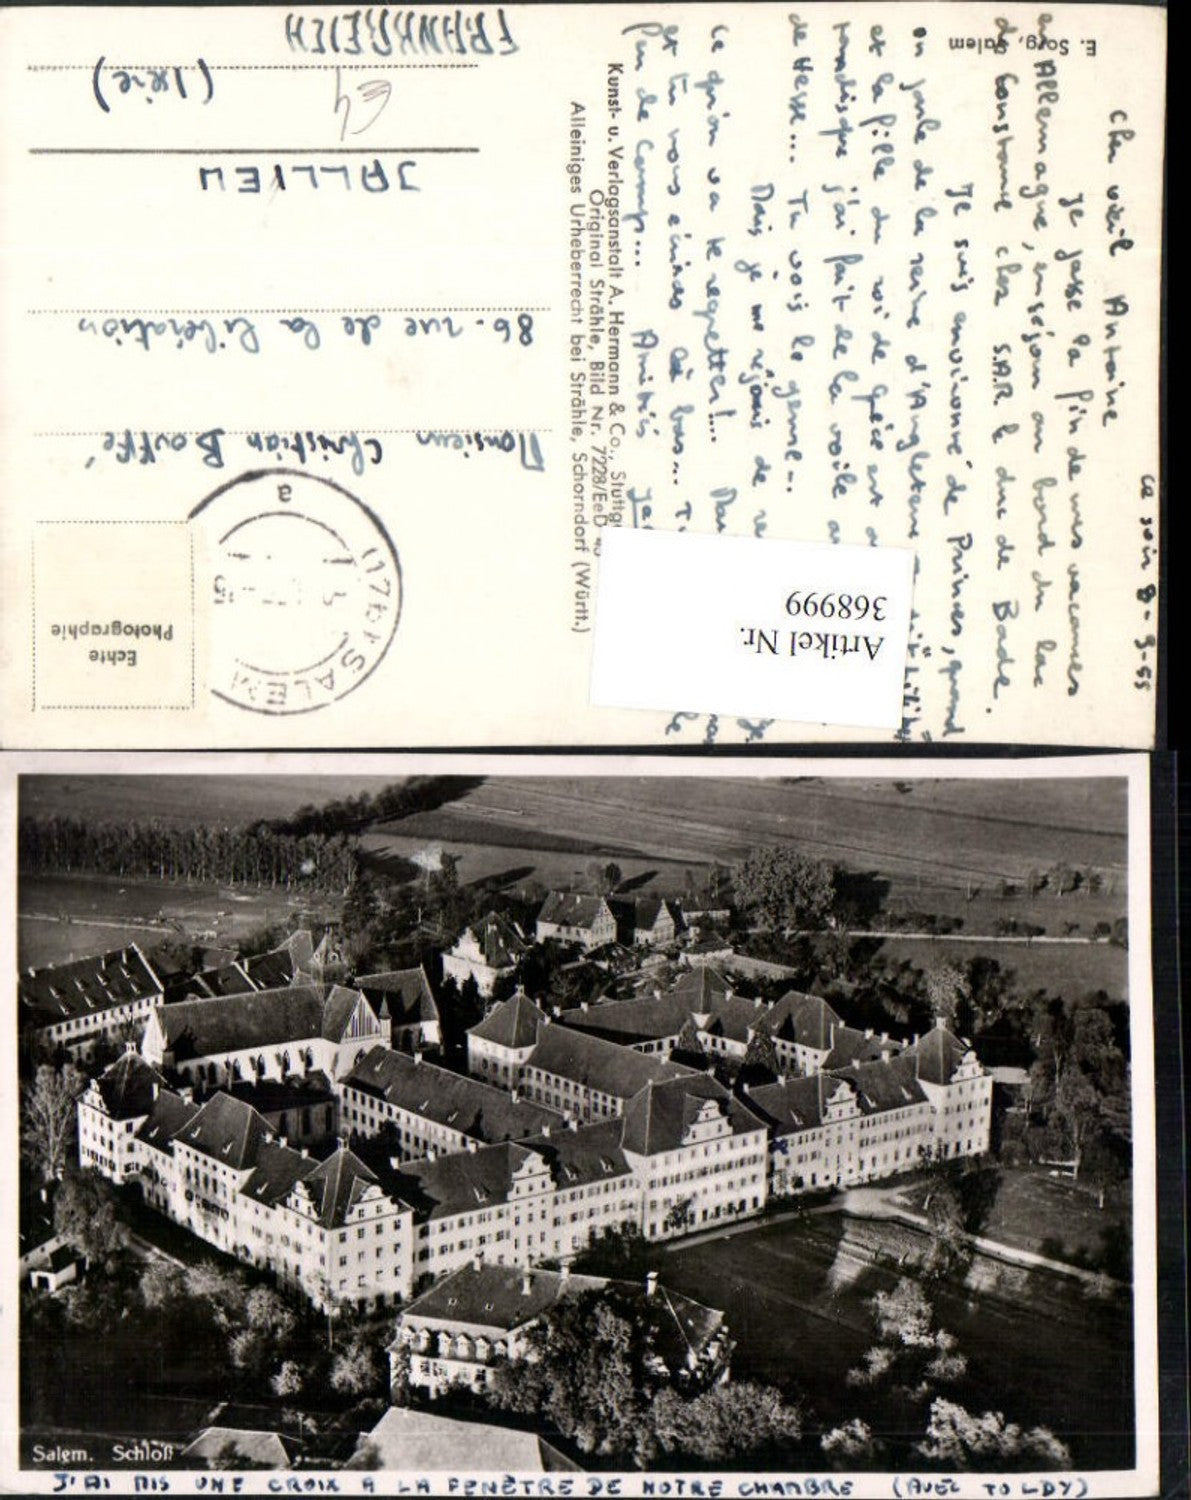 ce soir 8-9-55
Cher vieil Antoine
Je passe la fin de mes vacances
en Allemagne, en séjour au bord du lac
de Constance chez S.A.R le duc de Bade.
Je suis environné de Princes, quand
on parle de la reine d'Angleterre
et la fille du roi de Grèce est
tandis que j'ai fait de la voile
de Hesse... Tu vois le genre...
Mais je me réjouis de
ce qu'on va se regretter!...
et tu nous
feu de Camp... Amitiés
E. Sorg, Salem
Kunst- u. Verlagsanstalt A. Hermann & Co.,
Original Strähle, Bild Nr. 7228/EeD
Alleiniges Urheberrecht bei Strähle, Schorndorf (Württ.)
Echte
Photographie
(17b) SALEM
a
Monsieur Christian Bouffé
86 - rue de la libération
JALLIEU
(Isère)
FRANKREICH
Artikel Nr.
368999
Salem. Schloß
J'AI MIS UNE CROIX A LA FENÊTRE DE NOTRE CHAMBRE (AVEC TOLDY)